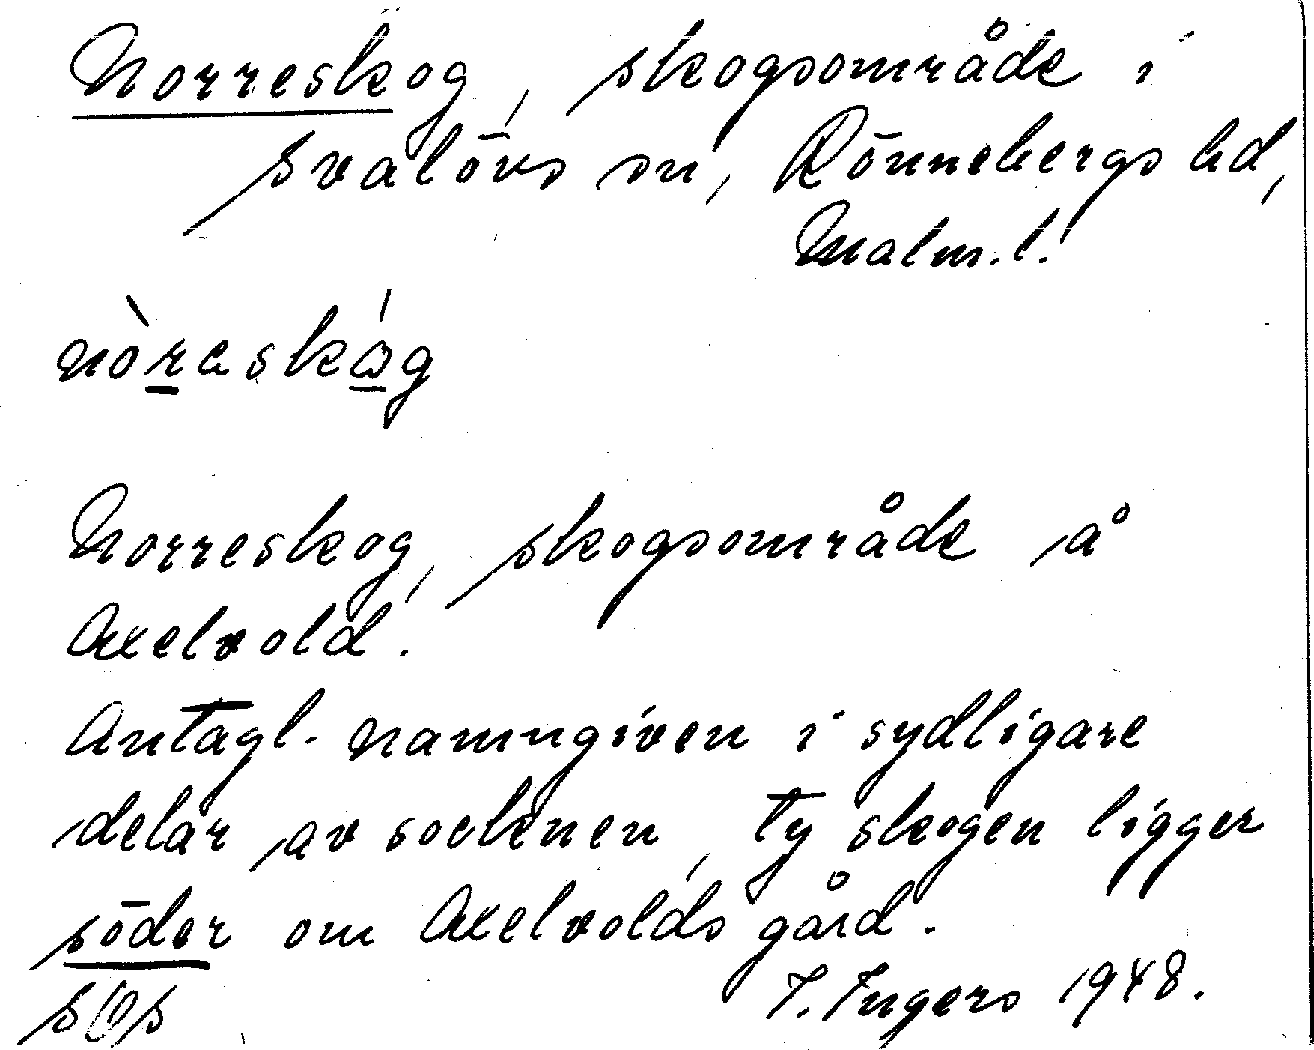 Norreskog, skogsområde i
Svalövs sn, Rönnebergs hd,
Malm.l.
nòreskóg
Norreskog, skogsområde å
Axelvold.
Antagl. namngiven i sydligare
delar av socknen, ty skogen ligger
söder om Axelvolds gård.
I. Ingers 1948.